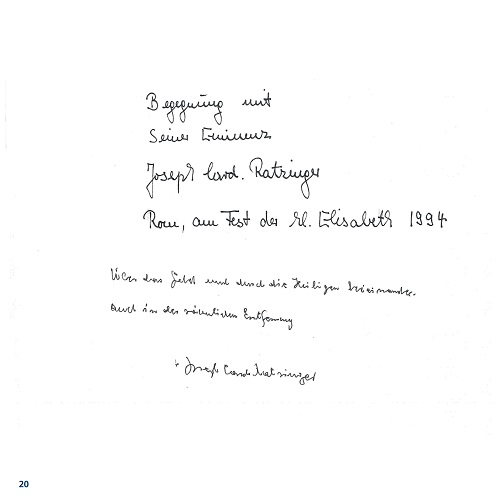 Begegnung mit
Seiner Eminenz
Joseph Card. Ratzinger
Rom, am Fest der Hl. Elisabeth 1994
Über das Gebet und durch die Heiligen beieinander.
Auch in der räumlichen Entfernung
+ Joseph Card. Ratzinger
20